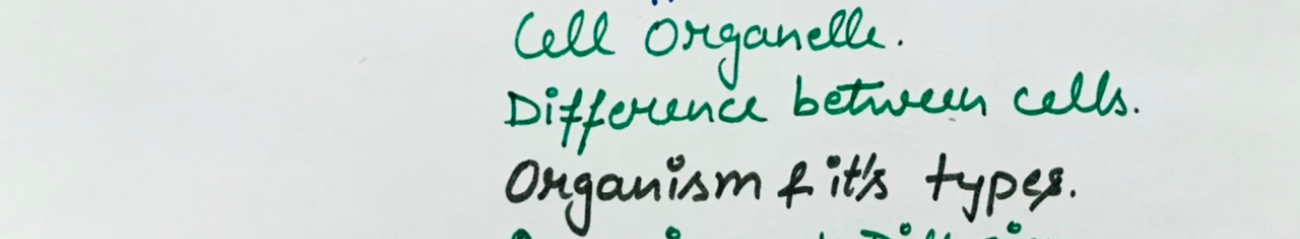 Cell Organelle.
Difference between cells.
Organism & it's types.